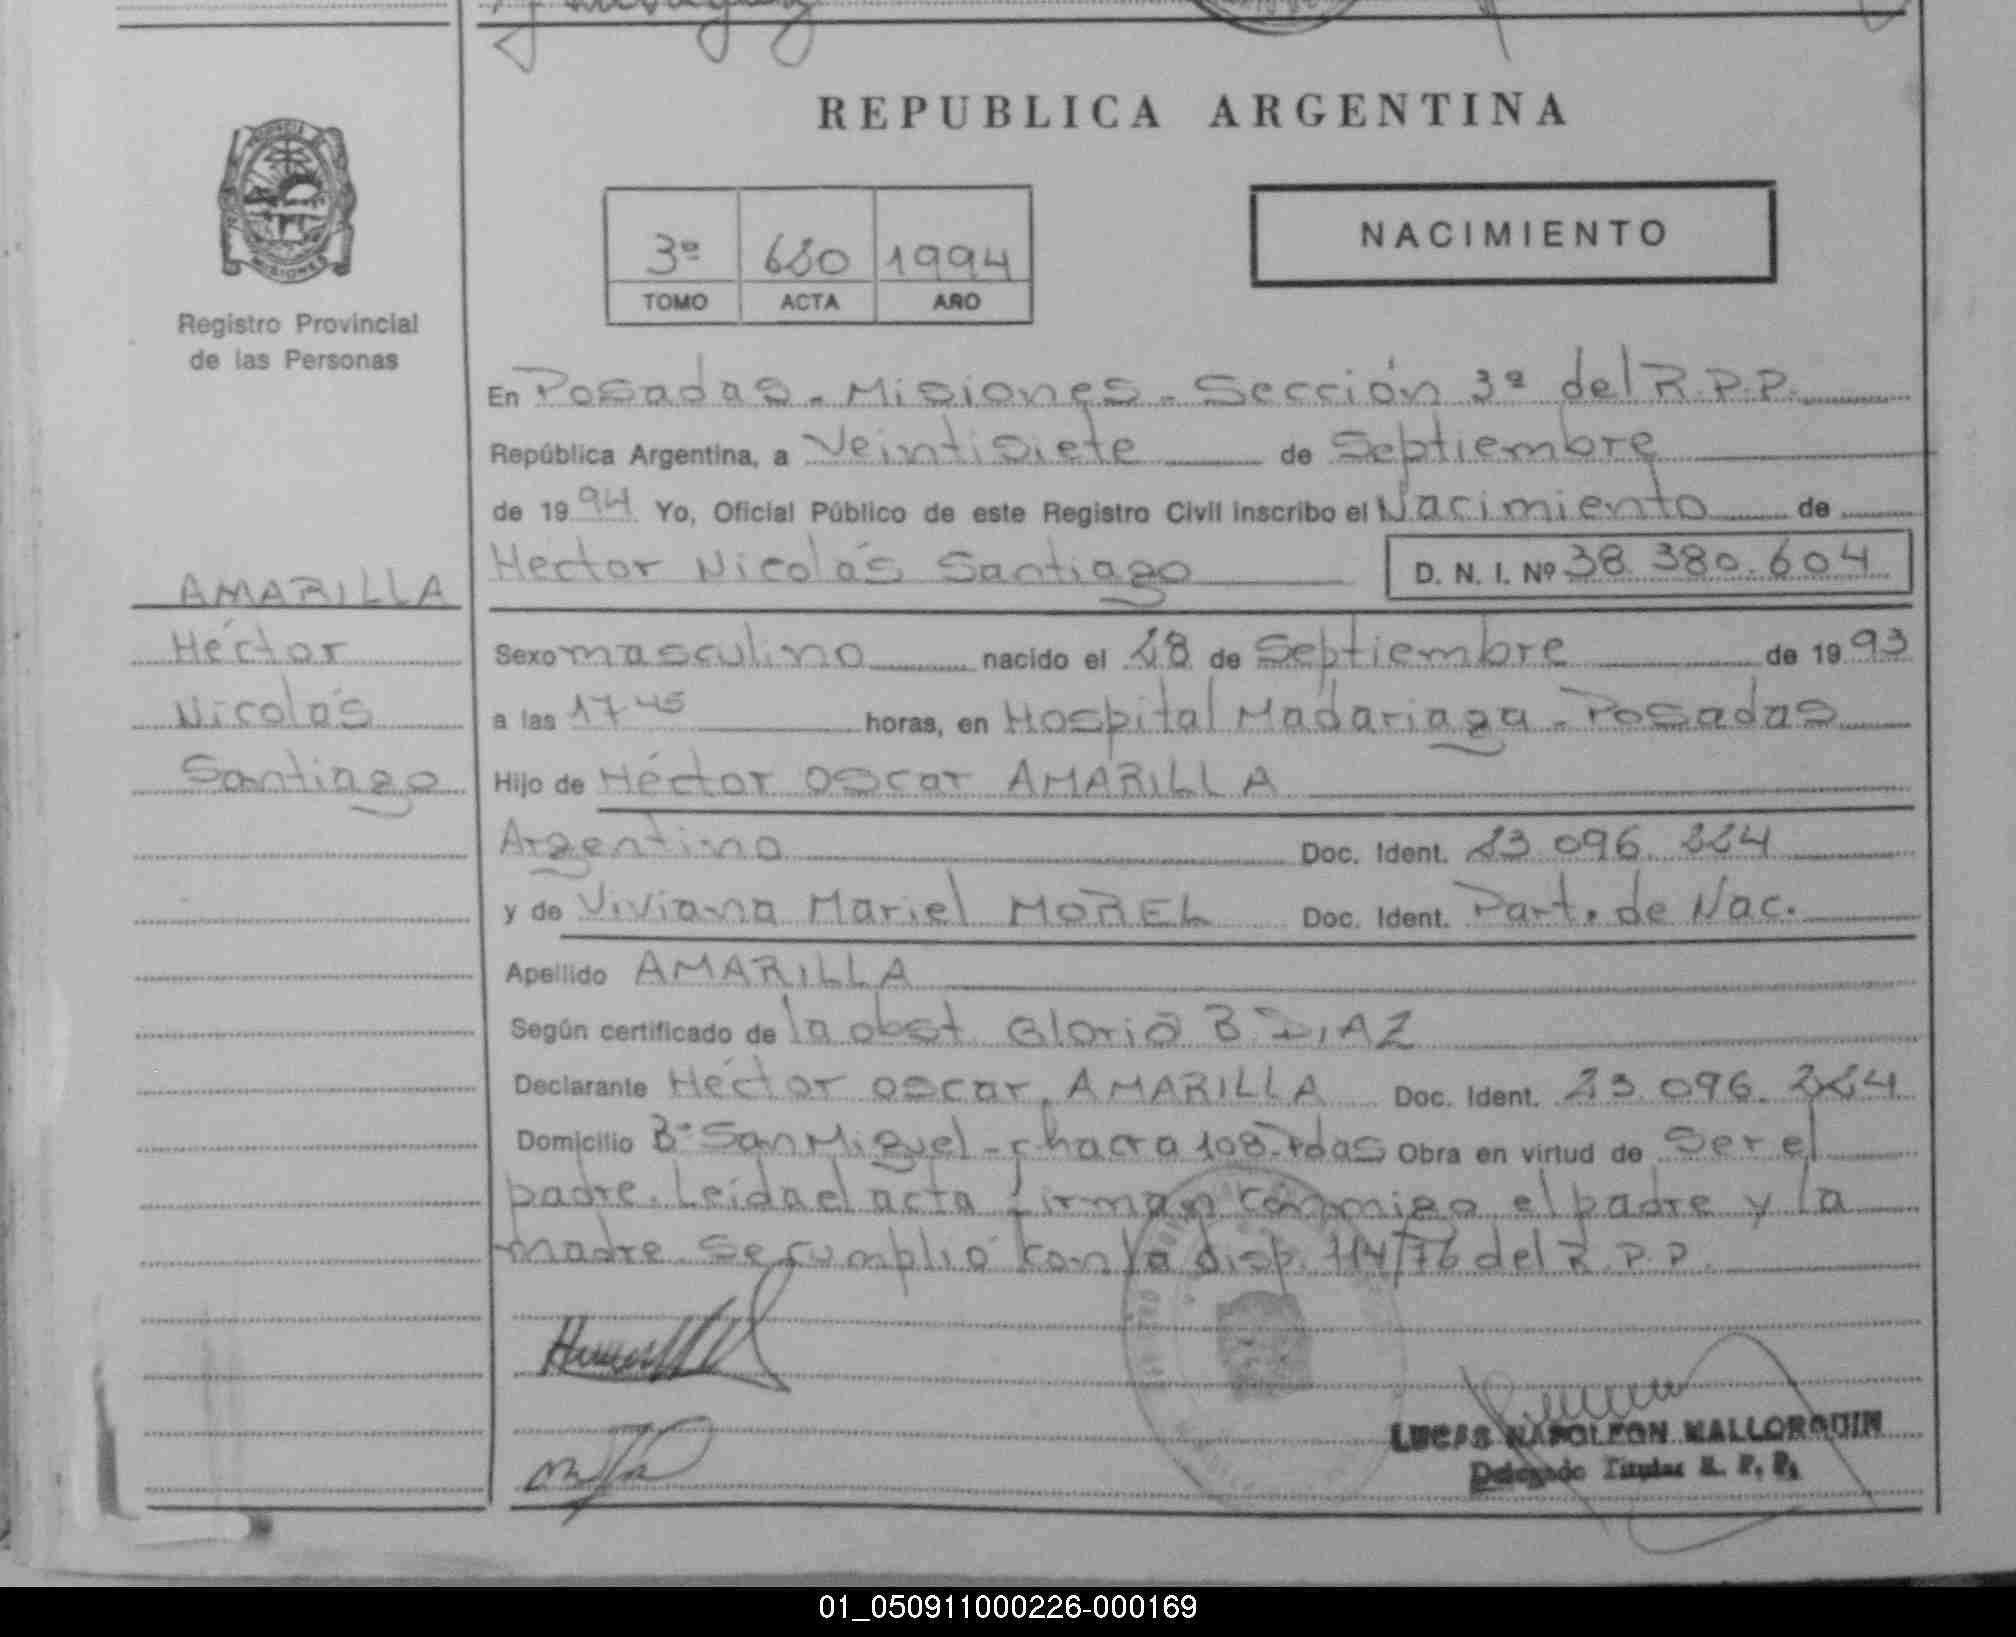 REPUBLICA ARGENTINA
MISIONES
Registro Provincial
de las Personas
NACIMIENTO
3ª 680 1994
TOMO ACTA AÑO
En Posadas - Misiones - Sección 3ª del R.P.P.
República Argentina, a Veintisiete de Septiembre
de 1994 Yo, Oficial Público de este Registro Civil inscribo el Nacimiento de
Hector Nicolás Santiago D. N. I. Nº 38.380.604
AMARILLA
Héctor
Nicolás
Santiago
Sexo masculino nacido el 28 de Septiembre de 1993
a las 17 45 horas, en Hospital Madariaga - Posadas
Hijo de Héctor Oscar AMARILLA
Argentino Doc. Ident. 23.096.224
y de Viviana Mariel MOREL Doc. Ident. Part. de Nac.
Apellido AMARILLA
Según certificado de la obst. Gloria B. DIAZ
Declarante Héctor Oscar AMARILLA Doc. Ident. 23.096.224
Domicilio Bº San Miguel - chacra 108 - Pdas Obra en virtud de Ser el
padre. Leida el acta firman conmigo el padre y la
madre. Se cumplió con la disp. 114/76 del R.P.P.
LUCAS NAPOLEON MALLORQUIN
Delegado Titular R. P. P.
01_050911000226-000169